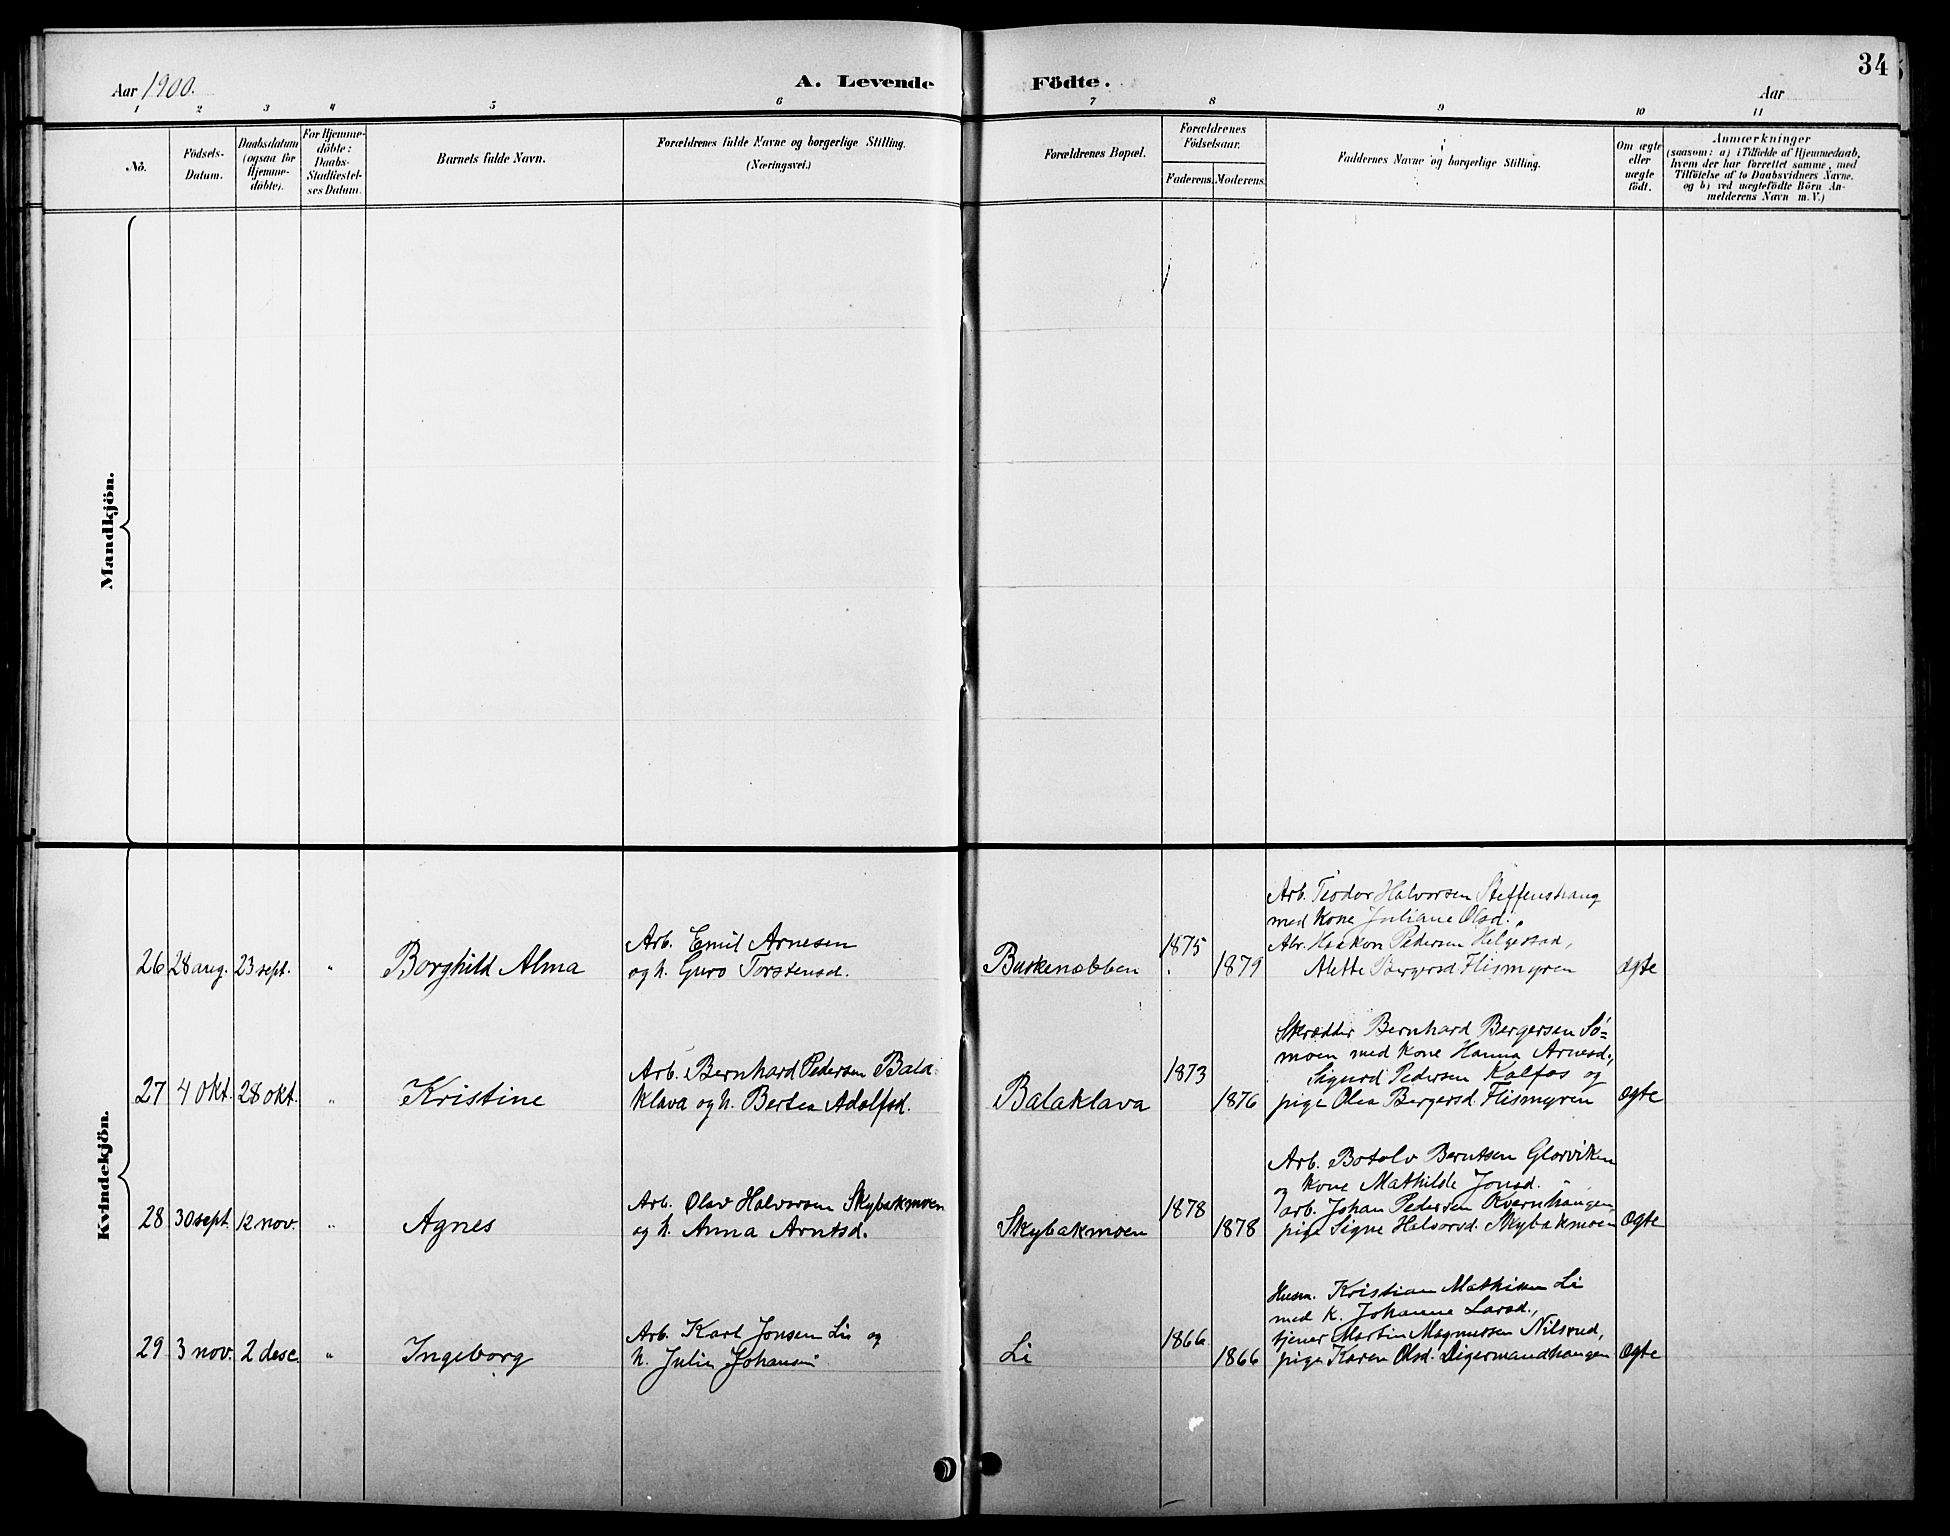 34
Aar 1900.
A. Levende Födte.
Aar
1 2 3 4 5 6 7 8 9 10 11
No.
Födsels-Datum.
Daabsdatum (ogsaa for Hjemmedöbte).
For Hjemmedöbte: Daabs-Stadfæstelses Datum.
Barnets fulde Navn.
Forældrenes fulde Navne og borgerlige Stilling. (Næringsvei.)
Forældrenes Bopæl.
Forældrenes Födselsaar.
Faderens. Moderens.
Faddernes Navne og borgerlige Stilling.
Om ægte eller uægte födt.
Anmærkninger
(saasom: a) i Tilfælde af Hjemmedaab,
hvem der har forrettet samme, med
Tilföielse af to Daabsvidners Navne.
og b) ved uægtefödte Börn An-
melderens Navn m. V.)
Mandkjön.
Kvindekjön.
26 28 aug. 23 sept. " Borghild Alma
Arb. Emil Arnesen
og h. Guro Torstensd.
Buskenobben
1875
1879
Arb. Teodor Halvorsen Steffenshaug
med kone Juliane Olsd.,
Arb. Haakon Pedersen Helgestad,
Alette Bergersd. Flismyren
ægte
27 4 okt. 28 okt. " Kristine
Arb. Bernhard Pedersen Bala-
klava og h. Bertea Adolfsd.
Balaklava
1873
1876
Skrædder Bernhard Bergersen Sö-
moen med kone Hanna Arnesd.,
Sigurd Pedersen Kalfos og
pige Olea Bergersd. Flismyren
ægte
28 30 sept. 12 nov. " Agnes
Arb. Olav Halvorsen Skybakmoen
og h. Anna Arntsd.
Skybakmoen
1878
1878
Arb. Botolv Berntsen Glorviken
og kone Mathilde Jonsd.
arb. Johan Pedersen Kvernhaugen,
pige Signe Halvorsd. Skybakmoen
ægte
29 3 nov. 2 dese. " Ingeborg
Arb. Karl Jonsen Li og
h. Julie Johansd.
Li
1866
1866
Husm. Kristian Mathisen Li
med k. Johanne Larsd.,
tjener Martin Magnussen Nilsrud,
pige Karen Olsd. Digermandhaugen
ægte